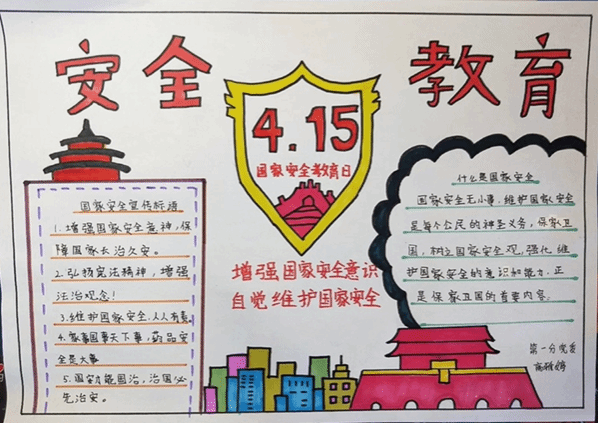 安全 教育
4.15
国家安全教育日
增强国家安全意识
自觉维护国家安全
国家安全宣传标语
1.增强国家安全意神,保
障国家长治久安。
2.弘扬宪法精神,增强
法治观念!
3.维护国家安全,人人有责
4.家事国事天下事,药品安
全是大事
5.国安才能国治,治国必
先治安。
什么是国家安全
国家安全无小事,维护国家安全
是每个公民的神圣义务,保家卫
国,树立国家安全观,强化维
护国家安全的意识和能力,正
是保家卫国的首要内容。
第一分党支